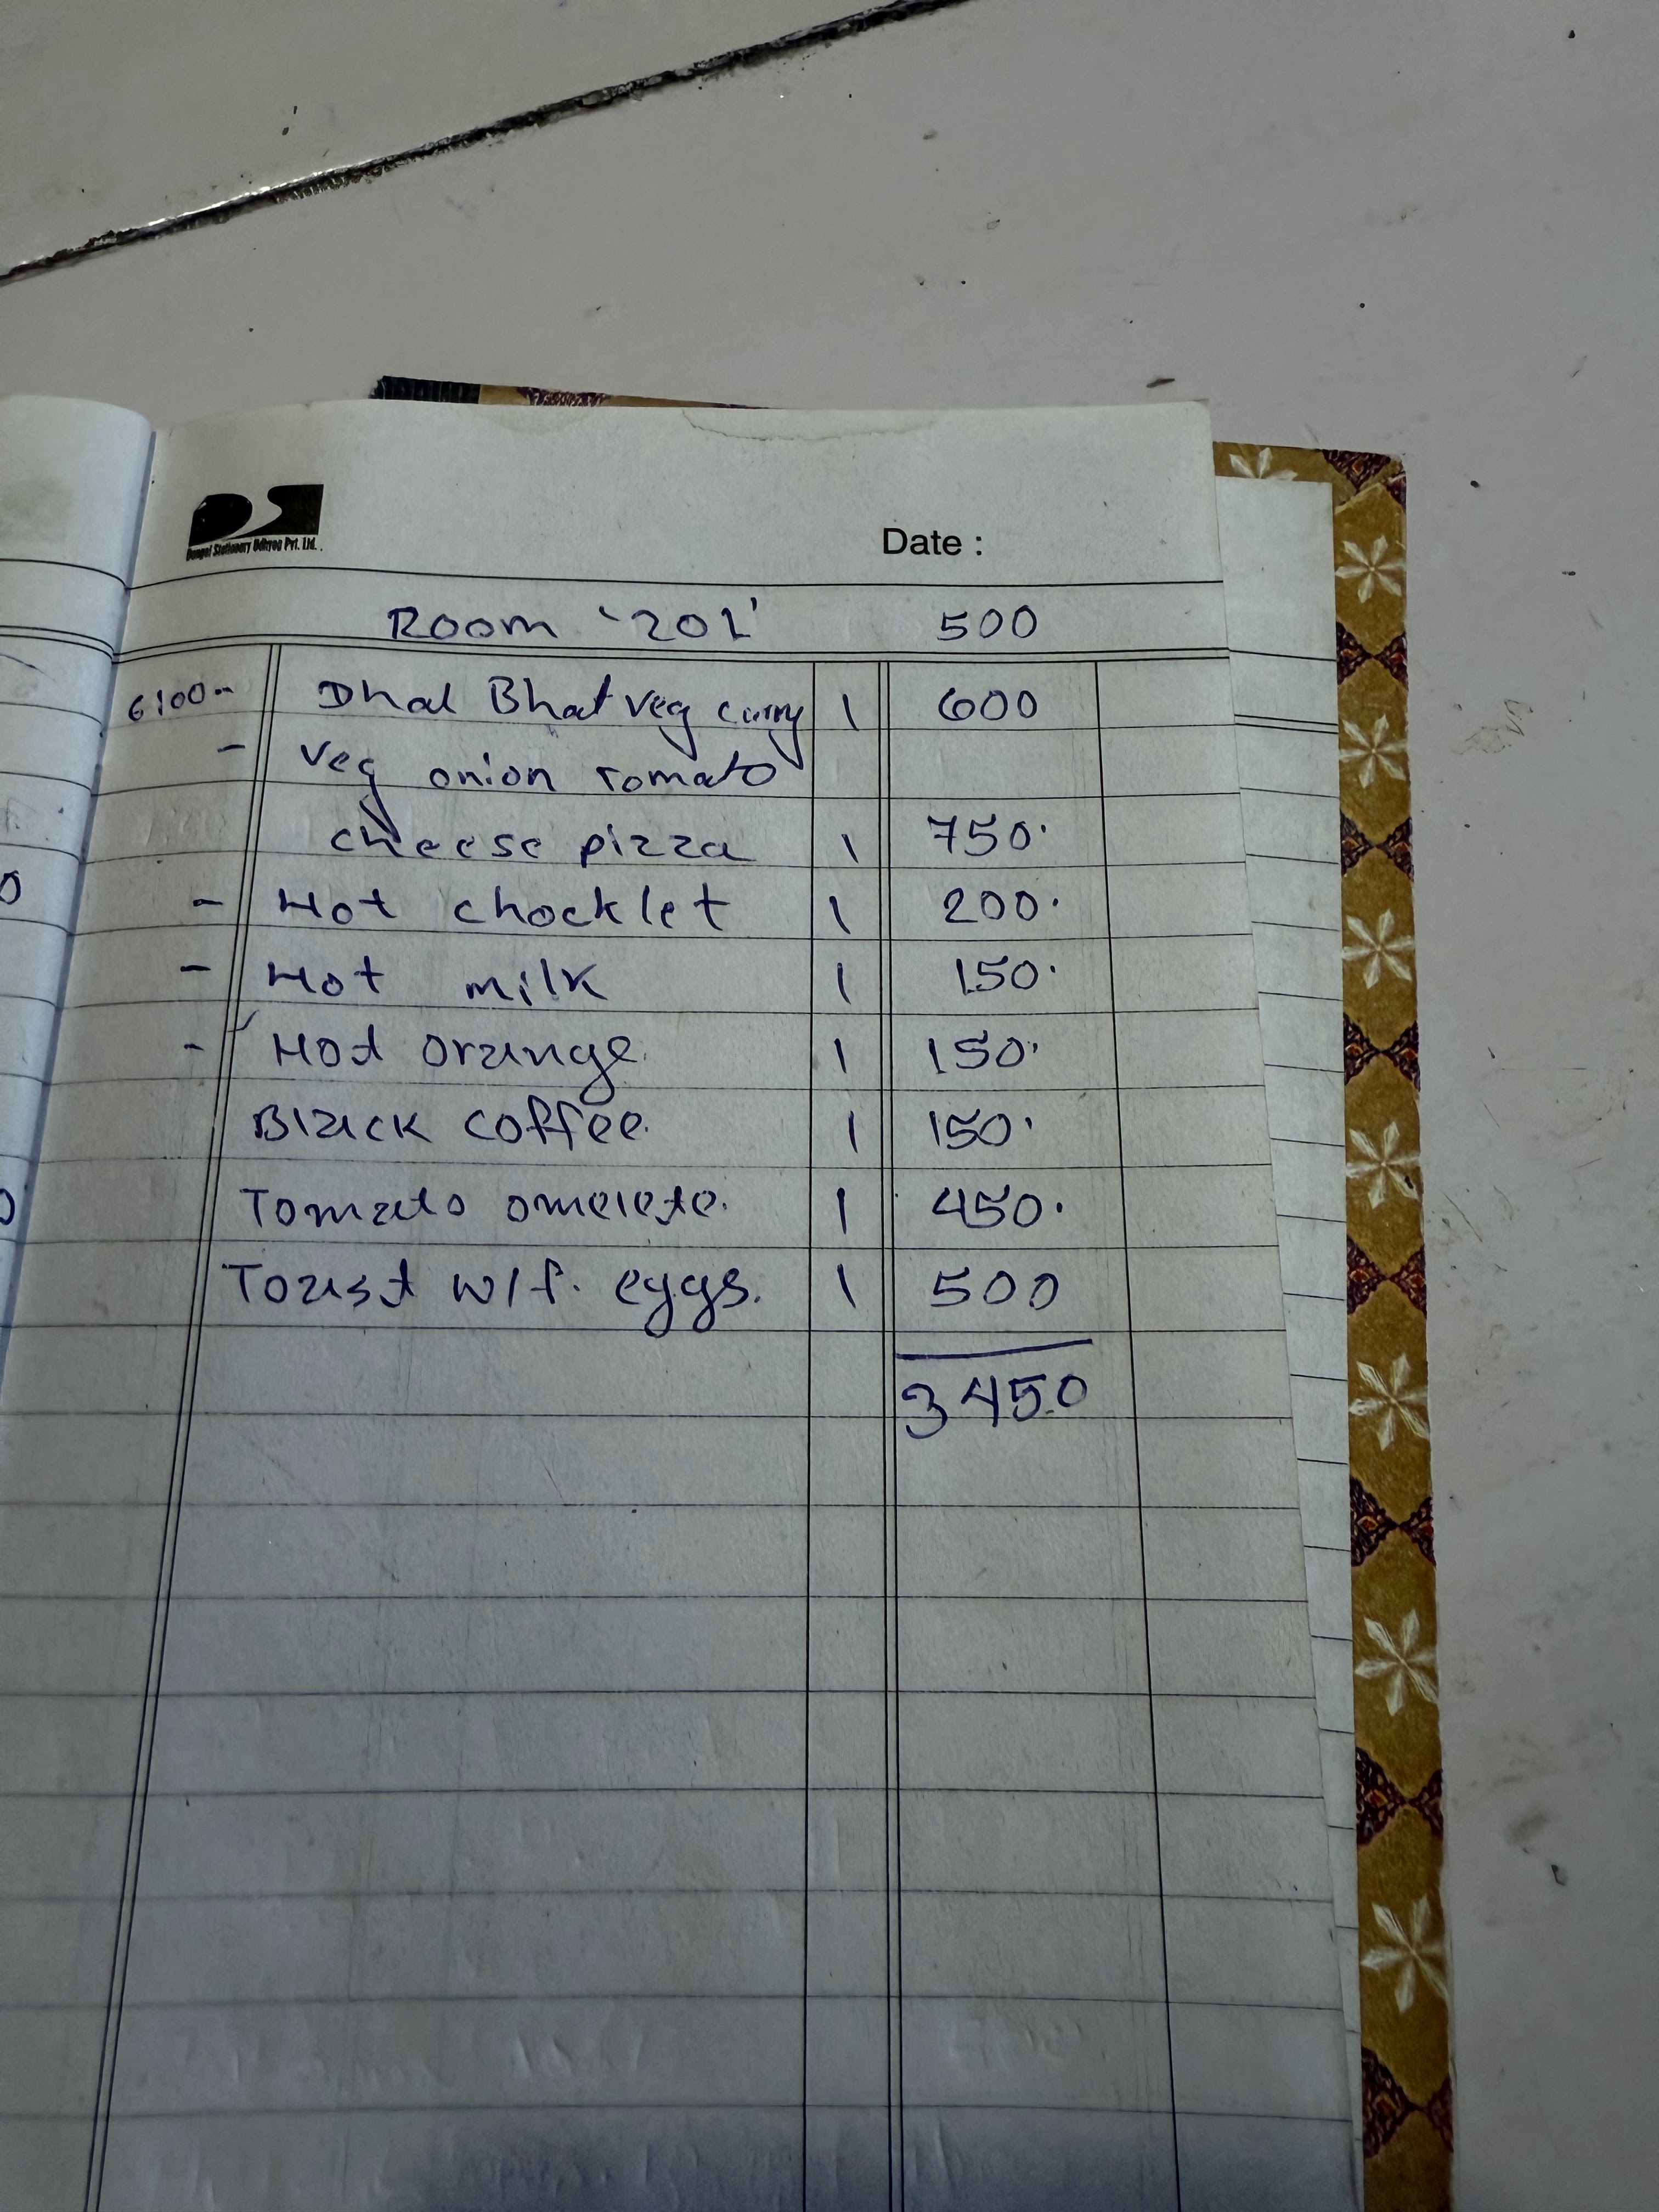 Dangol Stationery Udhyog Pvt. Ltd.
Date :
Room '201' 500
6100- Dhal Bhat veg curry 1 600
- veg onion tomato
cheese pizza 1 750.
- Hot chocklet 1 200.
- Hot milk 1 150.
- Hot orange. 1 150.
Black coffee. 1 150.
Tomato omelete. 1 450.
Toast w/f. eggs. 1 500
3450